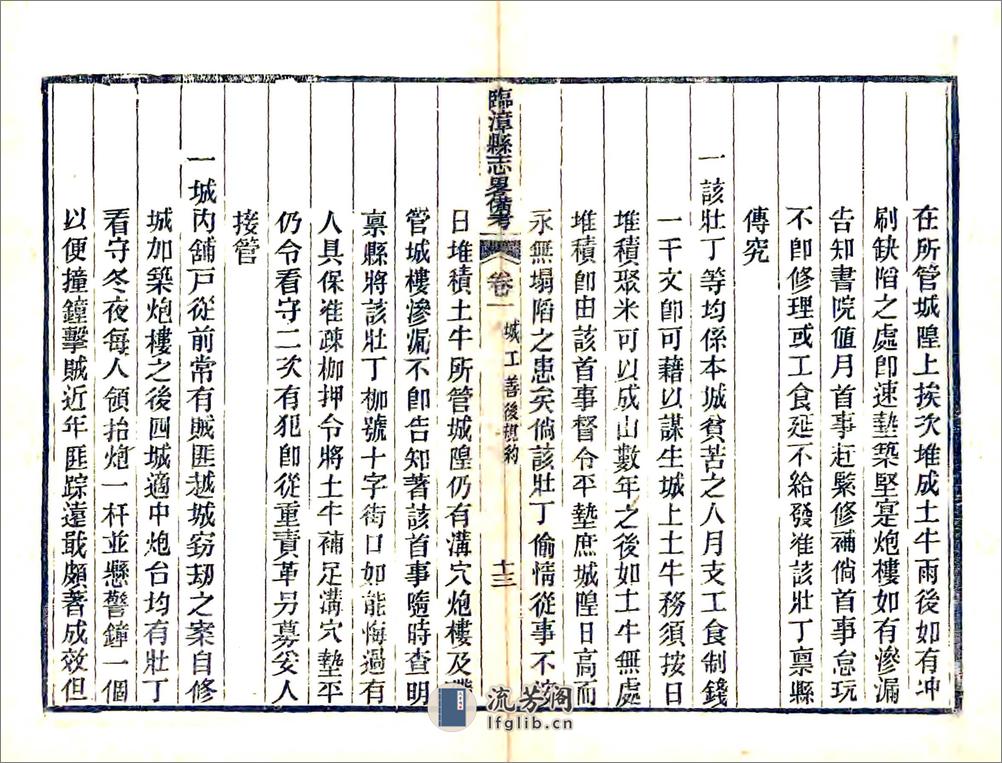 在所管城隍上挨次堆成土牛雨後如有冲
刷缺陷之處卽速墊築堅寔炮樓如有滲漏
告知書院值月首事赶緊修補倘首事怠玩
不卽修理或工食延不給發准該壮丁禀縣
傳究
一該壮丁等均係本城貧苦之人月支工食制錢
一千文卽可藉以謀生城上土牛務須按日
堆積聚米可以成山數年之後如土牛無處
堆積卽由該首事督令平墊庶城隍日高而
永無塌陷之患矣倘該壮丁偷惰從事不
臨漳縣志畧備考
卷一
城工善後規約
十三
日堆積土牛所管城隍仍有溝穴炮樓及
管城樓滲漏不卽告知著該首事隨時查明
禀縣將該壮丁枷號十字街口如能悔過有
人具保准疎枷押令將土牛補足溝穴墊平
仍令看守二次有犯卽從重責革另募妥人
接管
一城内舖戸從前常有賊匪越城窃刼之案自修
城加築炮樓之後四城適中炮台均有壮丁
看守冬夜每人領抬炮一杆並懸警鐘一個
以便撞鐘擊賊近年匪踪遠戢頗著成效但
流芳阁
lfglib.cn